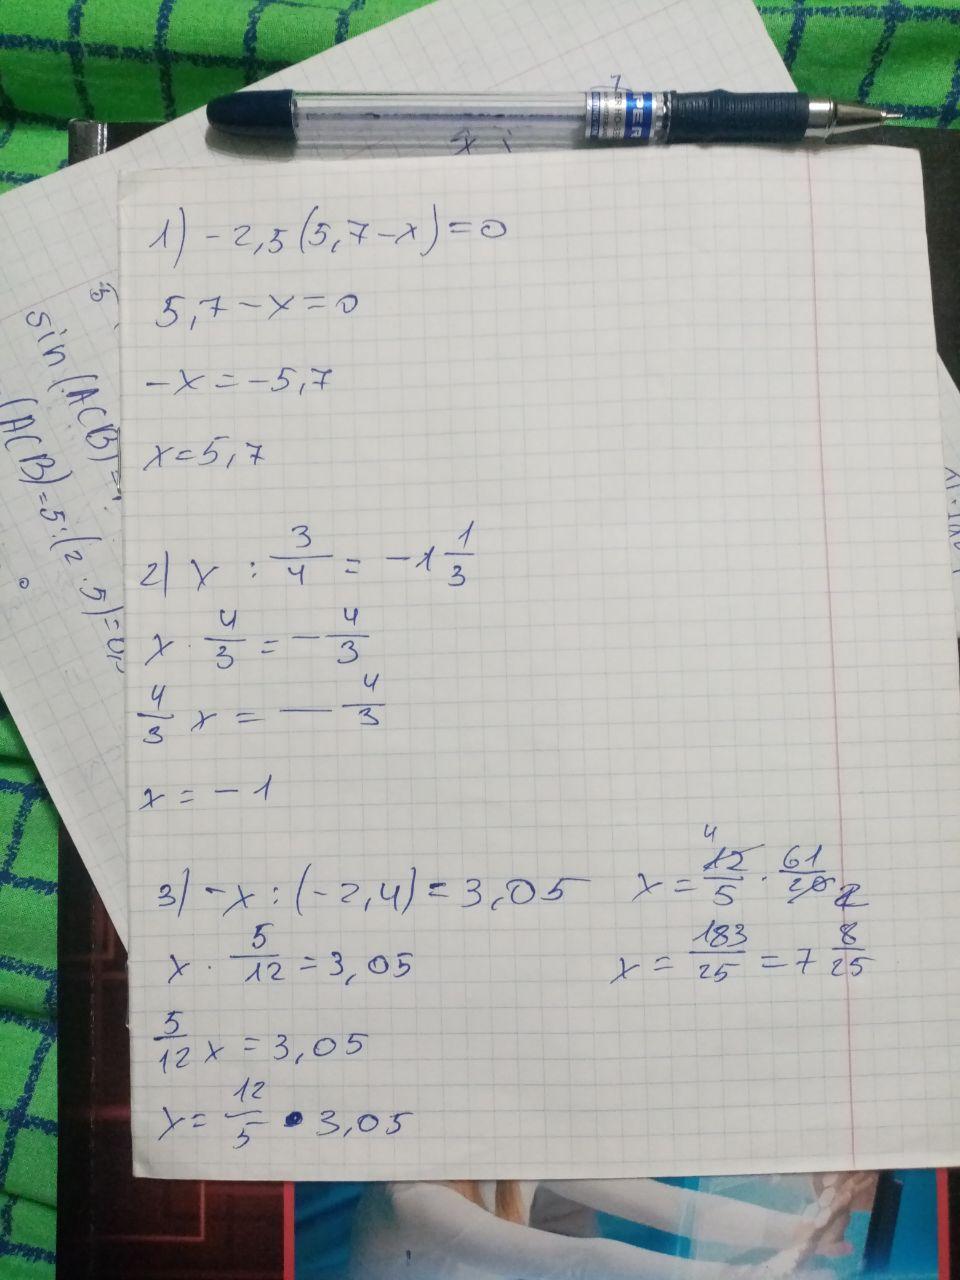 1) -2,5(5,7-x)=0
5,7-x=0
-x=-5,7
x=5,7
2) x : 3/4 = -1 1/3
x · 4/3 = - 4/3
4/3 x = - 4/3
x = -1
3) -x : (-2,4) = 3,05
x · 5/12 = 3,05
5/12 x = 3,05
x = 12/5 · 3,05
x = 12/5 · 61/20
4
x = 183/25 = 7 8/25
sin(ACB)=
(ACB)=5:(2·5)=
PER